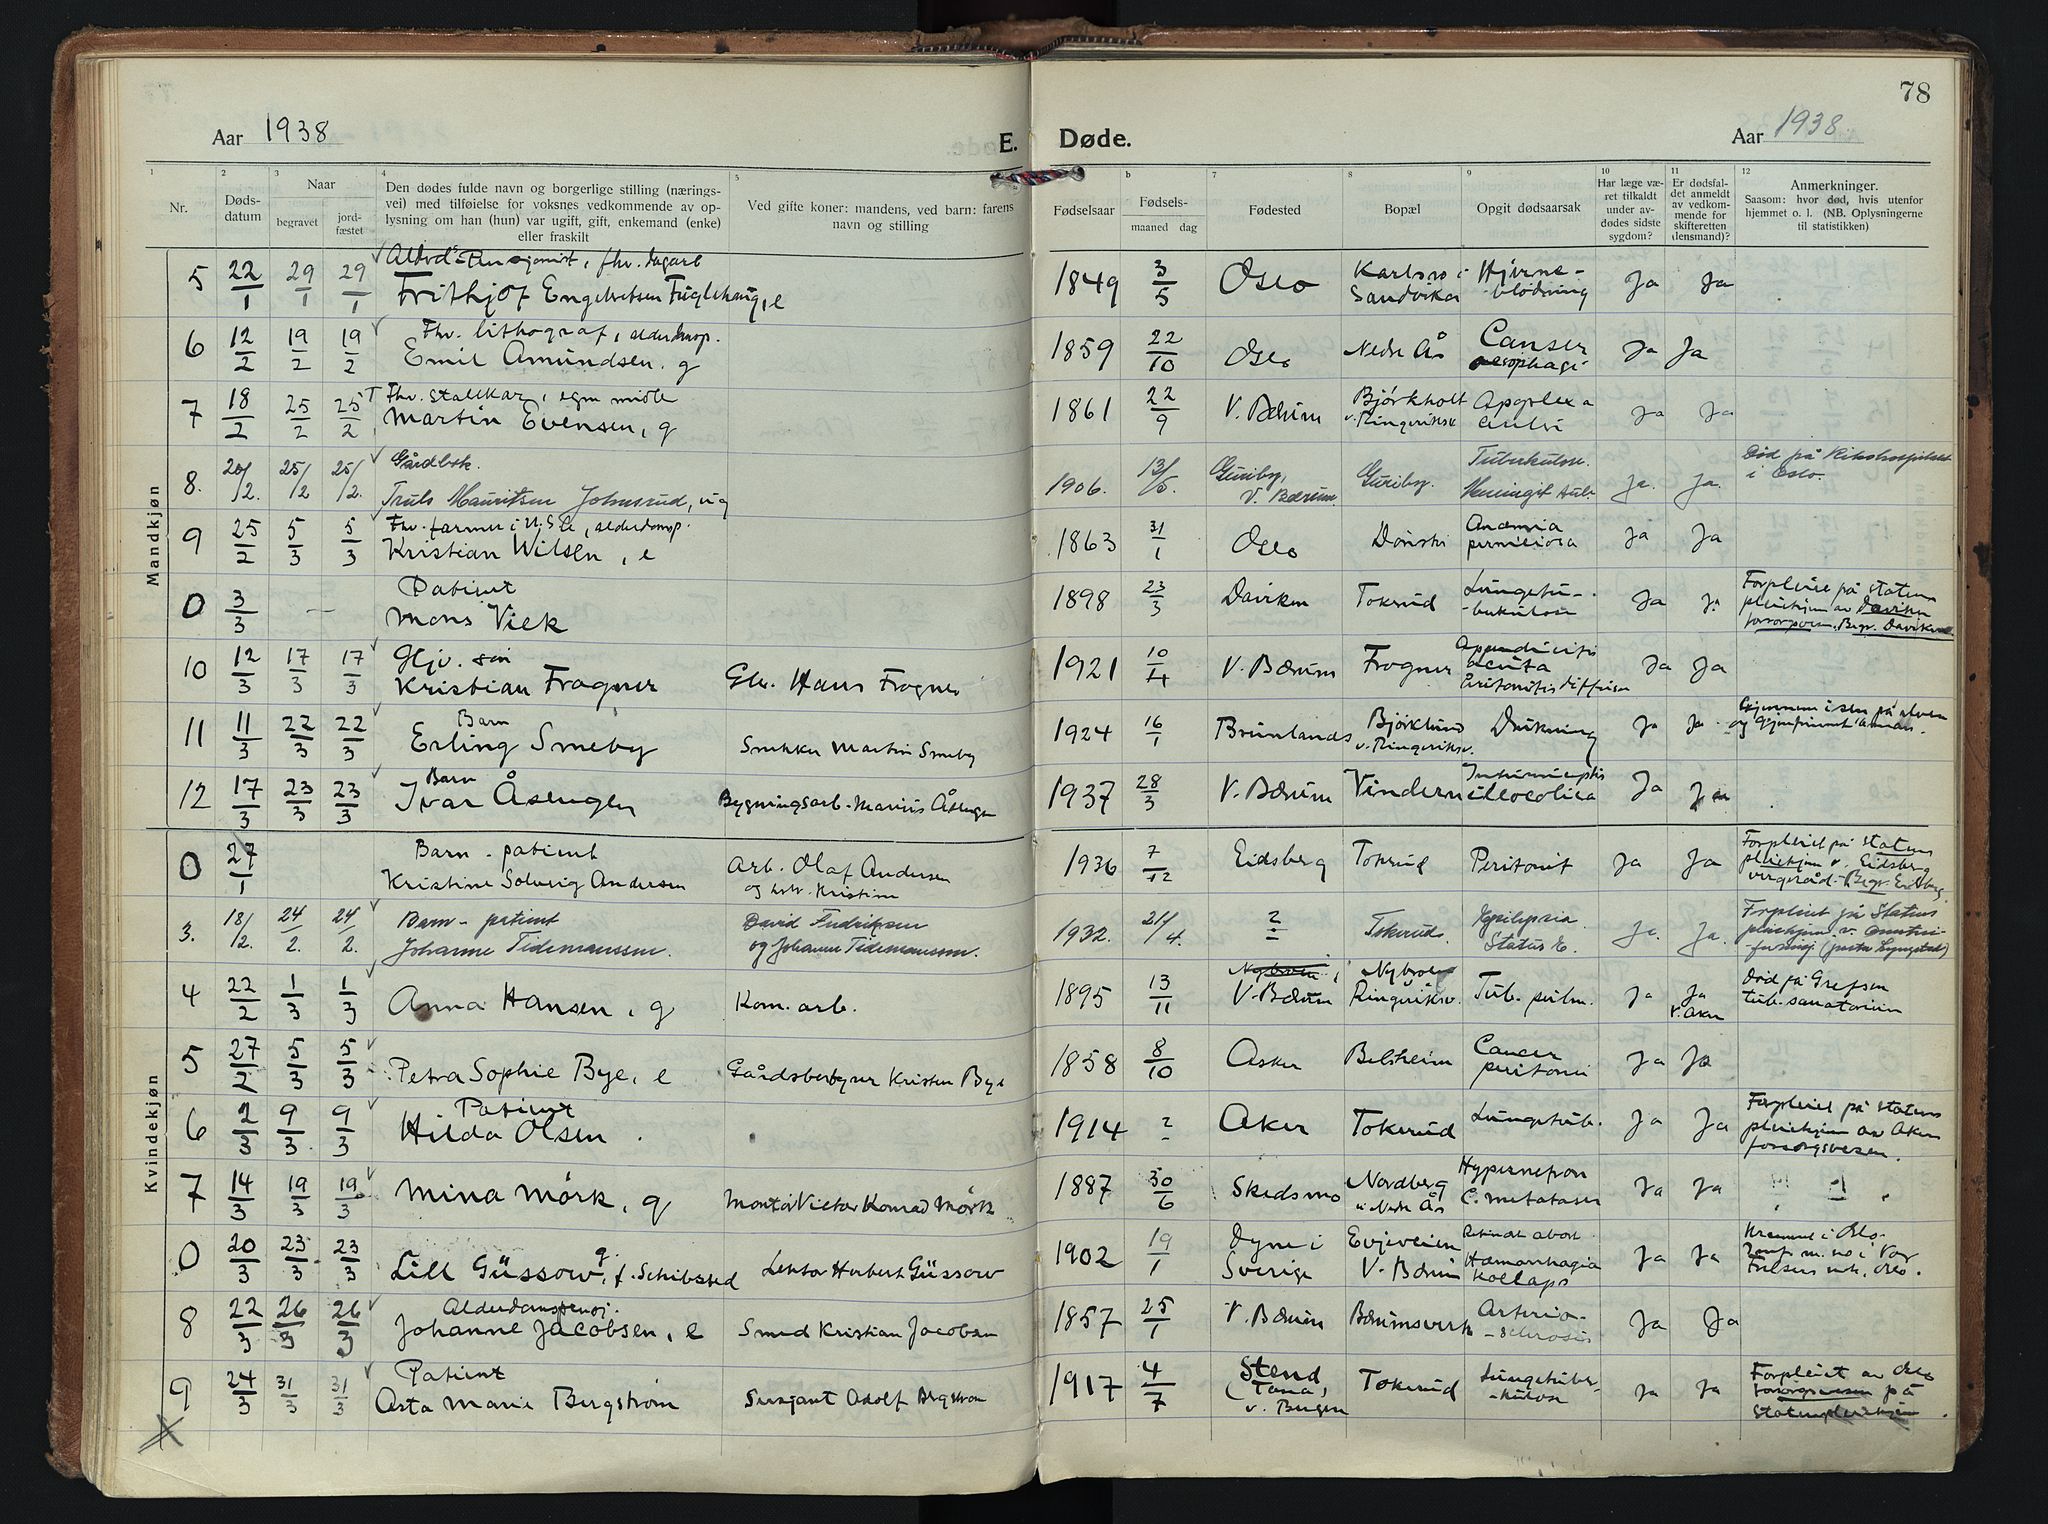 78
Aar 1938
E. Døde.
Aar 1938
1 2 3 4 5 6 7 8 9 10 11 12
Nr.
Døds-
datum
Naar
begravet
jord-
fæstet
Den dødes fulde navn og borgerlige stilling (nærings-
vei) med tilføielse for voksnes vedkommende av op-
lysning om han (hun) var ugift, gift, enkemand (enke)
eller fraskilt
Ved gifte koner: mandens, ved barn: farens
navn og stilling
Fødselsaar
Fødsels-
maaned dag
Fødested
Bopæl
Opgit dødsaarsak
Har læge væ-
ret tilkaldt
under av-
dødes sidste
sygdom?
Er dødsfal-
det anmeldt
av vedkom-
mende for
skifteretten
(lensmand)?
Anmerkninger.
Saasom: hvor død, hvis utenfor
hjemmet o. l. (NB. Oplysningerne
til statistikken)
Mandkjøn
5 22/1 29/1 29/1 fhv. dagarb
Frithjof Engelretsen Fuglehaug, e 1849 3/5 Oslo Sandvika Hjerne-
blødning Ja Ja
6 12/2 19/2 19/2 Fhv. lithograf,
Emil Amundsen, g 1859 22/10 Oslo Nedre Ås Canser
oesophagi Ja Ja
7 18/2 25/2 25/2 Fhv. Stallkar, egne midle
Martin Evensen, g 1861 22/9 V. Bærum Bjørkholt
v. Ringeriksv Ja Ja
8. 20/2. 25/2 25/2. Gårdbok.
Truls Mauritsen Johnsrud, ug 1906. 13/5. Guriby,
V. Bærum. Guriby. Tuberkuløs.
Meningit Ja. Ja. Død på Rikshospitalet
i Oslo.
9 25/2 5/3 5/3 Fhv. farmer i U.S.
Kristian Wilsen, e 1863 31/1 Oslo Anæmia
perniciosa Ja Ja
0 3/3 - Patient
Mons Viek 1898 23/3 Daviken Tokerud Lungetu-
-berkulose Ja Ja Forpleiet på statens
pleiehjem av Daviken
forsorgsvesen. Begr. Daviken.
10 12/3 17/3 17/3 Hjv. søn
Kristian Frogner Gbr. Hans Frogner 1921 10/4 V. Bærum Frogner Appendicitis
acuta
Peritonitis diffusa Ja Ja
11 11/3 22/3 22/3 Barn
Erling Smeby Snekker Martin Smeby 1924 16/1 Brunlands Bjørklund
v. Ringeriksv. Drukning Ja Ja
12 17/3 23/3 23/3 Barn
Ivar Åsengen Bygningsarb. Marius Åsengen 1937 28/3 V. Bærum Vindern illocolica Ja Ja
Kvindekjøn
0 27/1 Barn - patient
Kristine Solveig Andersen Arb. Olaf Andersen
og hstr. Kristine 1936 7/12 Eidsberg Tokerud Peritonit Ja Ja Forpleiet på statens
pleiehjem v. Eidsberg
vergeråd. Begr. Eidsberg.
3. 18/2. 24/2. 24/2. Barn - patient
Johanne Tidemanssen. David Fredriksen
og Johanne Tidemanssen. 1932. 21/4. ? Tokerud. Epilepsia
Status E. Ja. Ja. Forpleiet på Statens
pleiehjem v.
4 22/2 1/3 1/3 Anna Hansen, g Kom. arb. 1895 13/11 V. Bærum Nybroen
Ringeriksv. Tub. pulm. Ja Ja
v. Aker Død på Grefsen
tub. sanatorium
5 27/2 5/3 5/3 Petra Sophie Bye, e Gårdsbestyrer Kristen Bye 1858 8/10 Asker Belsheim Cancer
peritonei Ja Ja
6 2/3 9/3 9/3 Patient
Hilda Olsen 1914 ? Aker Tokerud Lungetub. Ja Ja Forpleiet på statens
pleiehjem av Aker
forsorgsvesen.
7 14/3 19/3 19/3 Mina Mørk, g Montør Victor Konrad Mørk 1887 30/6 Skedsmo Nordberg
v. Nedre Ås Hypernefron
c. metataser Ja Ja
0 20/3 23/3 23/3 Lill Güssow, g. f. Schibsted Lektor Herbert Güssow 1902 19/1 Dyne i
Sverige Evjeveien
V. Bærum abort
Hæmorrhagia
Kollaps Ja Ja
8 22/3 26/3 26/3 Alderdomspensj.
Johanne Jacobsen, e Smed Kristian Jacobsen 1857 25/1 V. Bærum Bærumsverk Arterio-
-sclerosis Ja Ja
9 24/3 31/3 31/3 Patient
Asta Marie Bergstrøm Sersjant Adolf Bergstrøm 1917 4/7 Stend
(Tana)
v. Bergen Tokerud Lungetuber-
-kulose Ja Ja Forpleiet av Oslo
forsorgsvesen på
Statenspleiehjem